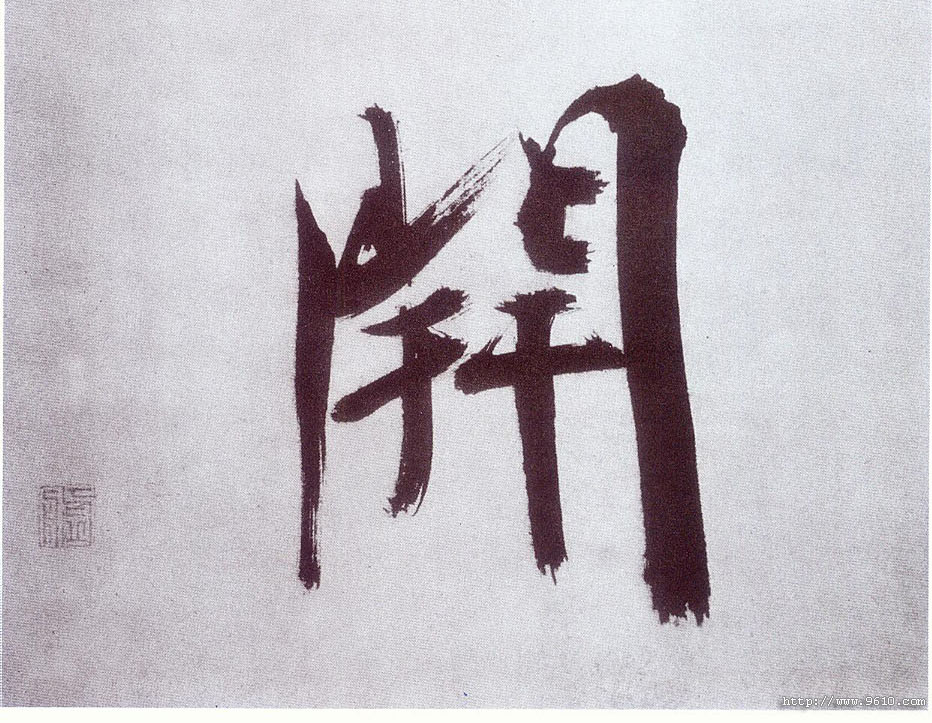 開
http://www.9610.com